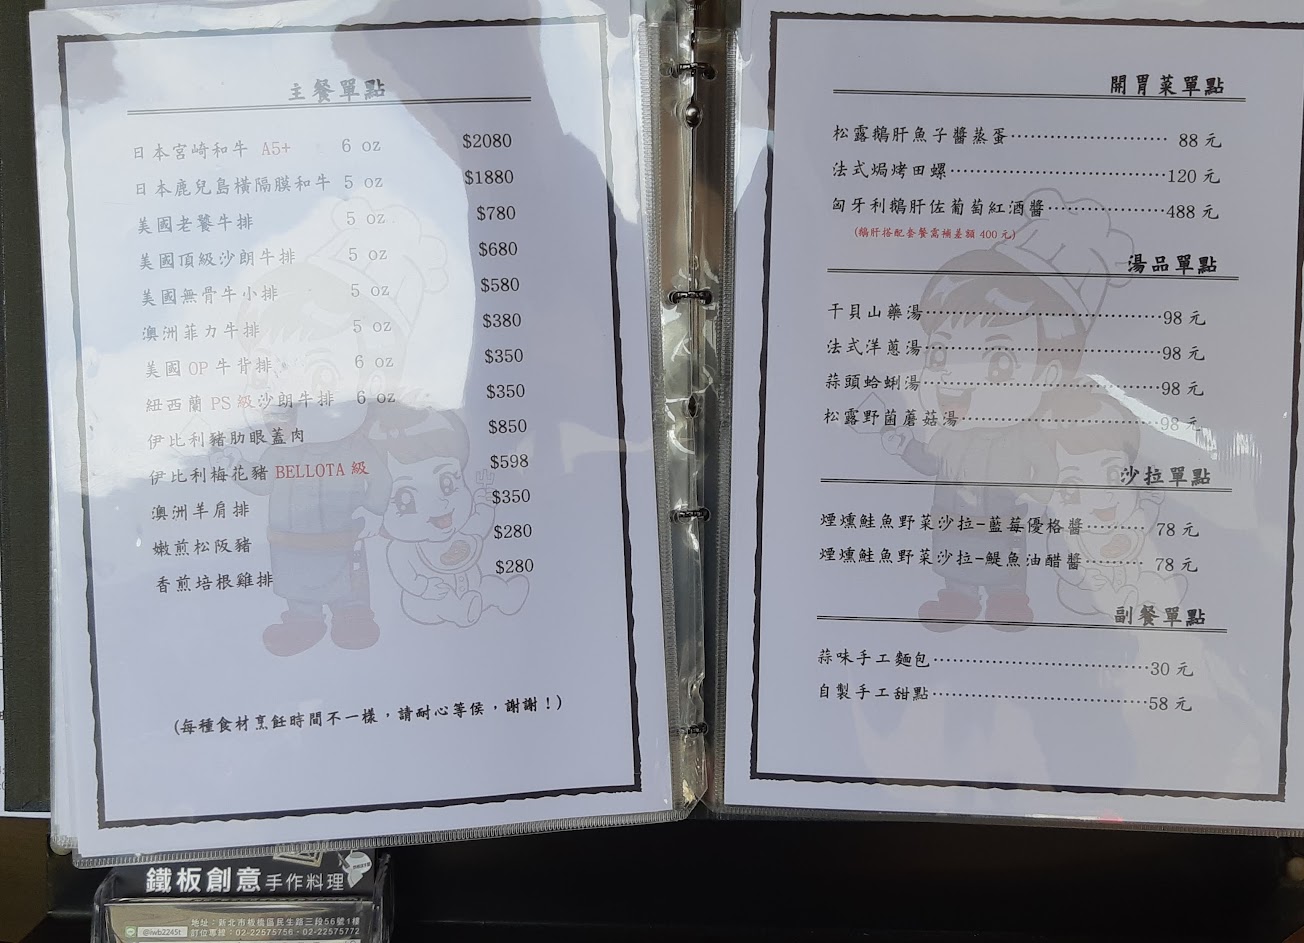 主餐單點
日本宮崎和牛 A5+ 6 oz $2080
日本鹿兒島橫隔膜和牛 5 oz $1880
美國老饕牛排 5 oz $780
美國頂級沙朗牛排 5 oz $680
美國無骨牛小排 5 oz $580
澳洲菲力牛排 5 oz $380
美國 OP 牛背排 6 oz $350
紐西蘭 PS 級沙朗牛排 6 oz $350
伊比利豬肋眼蓋肉 $850
伊比利梅花豬 BELLOTA 級 $598
澳洲羊肩排 $350
嫩煎松阪豬 $280
香煎培根雞排 $280
(每種食材烹飪時間不一樣，請耐心等侯，謝謝！)
開胃菜單點
松露鵝肝魚子醬蒸蛋························· 88 元
法式焗烤田螺··································120 元
匈牙利鵝肝佐葡萄紅酒醬··················488 元
(鵝肝搭配套餐需補差額 400 元)
湯品單點
干貝山藥湯·····································98 元
法式洋蔥湯·····································98 元
蒜頭蛤蜊湯·····································98 元
松露野菌蘑菇湯·······························98 元
沙拉單點
煙燻鮭魚野菜沙拉-藍莓優格醬········· 78 元
煙燻鮭魚野菜沙拉-鯷魚油醋醬········· 78 元
副餐單點
蒜味手工麵包··································30 元
自製手工甜點··································58 元
鐵板創意手作料理
@iwb2245t
地址：新北市板橋區民生路三段56號1樓
訂位專線：02-22575756・02-22575772